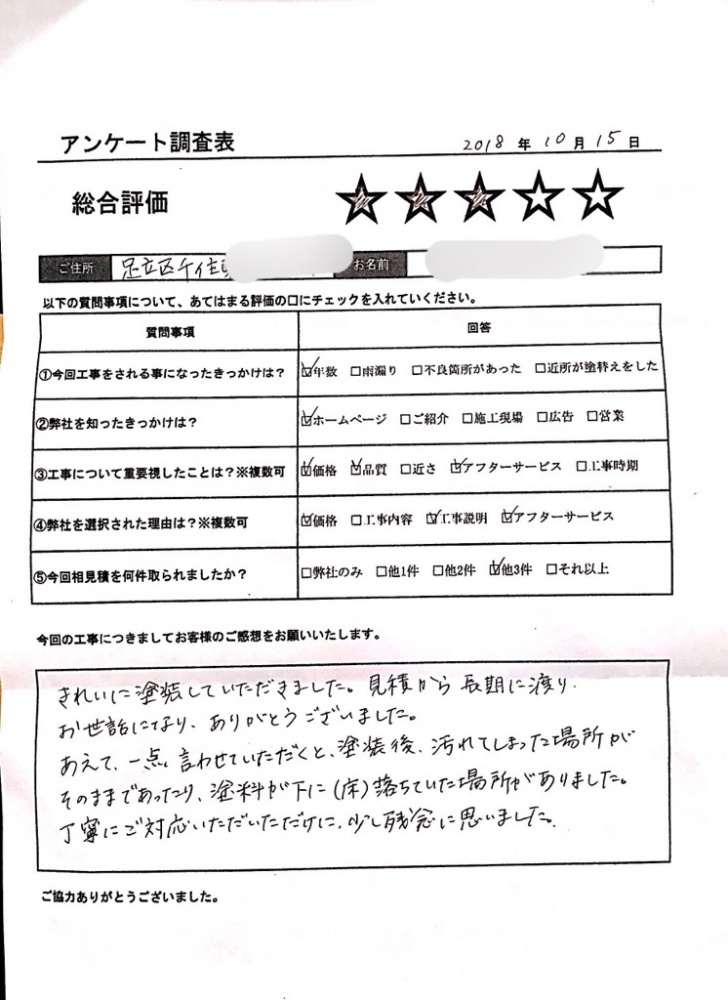 アンケート調査表
2018 年 10 月 15 日
総合評価
ご住所 足立区千住 お名前
以下の質問事項について、あてはまる評価の口にチェックを入れていください。
質問事項 回答
①今回工事をされる事になったきっかけは? ☑年数 □雨漏り □不良箇所があった □近所が塗替えをした
②弊社を知ったきっかけは? ☑ホームページ □ご紹介 □施工現場 □広告 □営業
③工事について重要視したことは?※複数可 ☑価格 ☑品質 □近さ ☑アフターサービス □工事時期
④弊社を選択された理由は?※複数可 ☑価格 □工事内容 ☑工事説明 ☑アフターサービス
⑤今回相見積を何件取られましたか? □弊社のみ □他1件 □他2件 ☑他3件 □それ以上
今回の工事につきましてお客様のご感想をお願いいたします。
きれいに塗装していただきました。見積から長期に渡り、
お世話になり、ありがとうございました。
あえて、一点、言わせていただくと、塗装後、汚れてしまった場所が
そのままであったり、塗料が下に(床)落ちていた場所がありました。
丁寧にご対応いただいただけに、少し残念に思いました。
ご協力ありがとうございました。